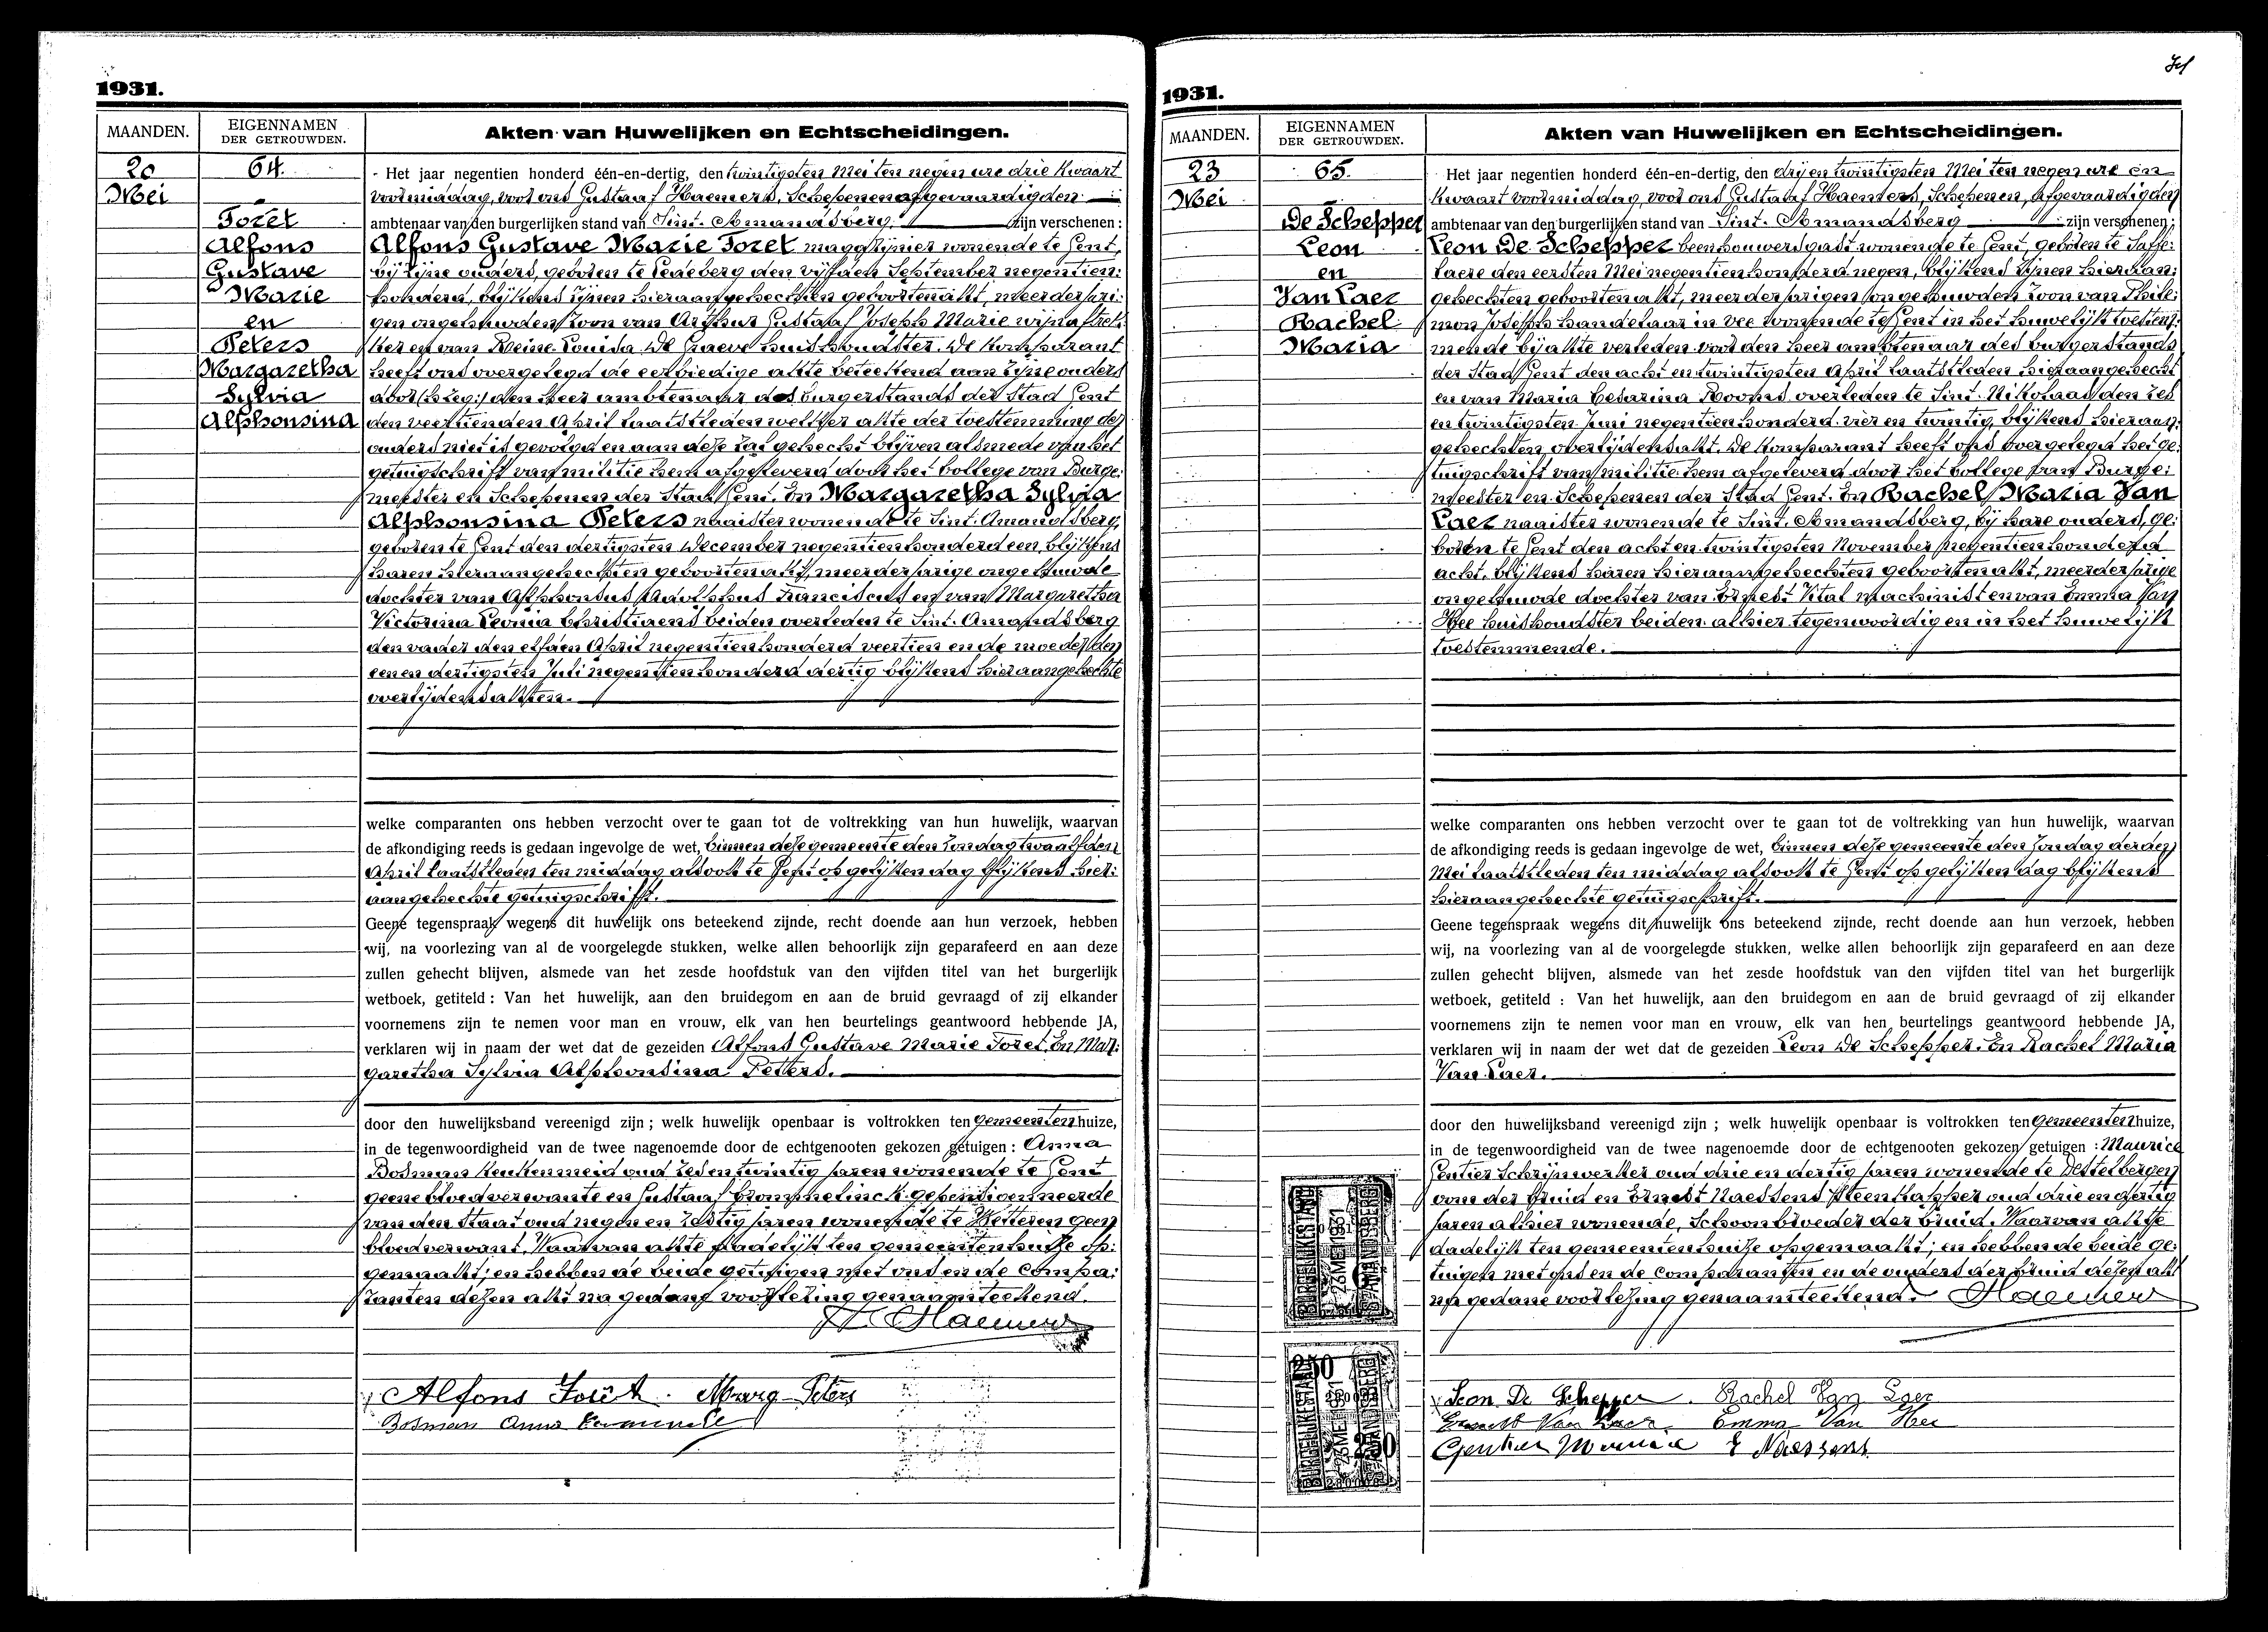 1931.
MAANDEN.
EIGENNAMEN
DER GETROUWDEN.
Akten van Huwelijken en Echtscheidingen.
20
Mei
64.
Joret
Alfons
Gustave
Marie
en
Peters
Margaretha
Sylvia
Alphonsina
Het jaar negentien honderd één-en-dertig, den twintigsten Mei ten negen ure drie kwaart
voormiddag, voor ons Gustaaf Haemers, Schepenen afgevaardigden
ambtenaar van den burgerlijken stand van Sint. Amandsberg. zijn verschenen:
Alfons Gustave Marie Joret magazijnier wonende te Gent,
bij zijne ouders, geboren te Ledeberg den vijfden September negentien:
honderd, blijkens zijnen hieraangehechten geboortenakt, meerderjari:
gen ongehuwden zoon van Arthur Gustaaf Joseph Marie wijnaftrek:
ker en van Reine Louisa De Graeve huishoudster. De komparant
heeft ons overgelegd de eerbiedige akte beteekend aan zijne ouders
door den heer ambtenaar des burgerstands der Stad Gent
den veertienden April laatstleden welker akte der toestemming der
ouders niet is gevolgd en aan deze zal gehecht blijven alsmede van het
getuigschrift van militie hem afgeleverd door het Collège van Burge:
meester en Schepenen der Stad Gent. En Margaretha Sylvia
Alphonsina Peters naaister wonende te Sint. Amandsberg,
geboren te Gent den dertigsten December negentienhonderd een, blijkens
haren hieraangehechten geboortenakt, meerderjarige ongehuwde
dochter van Alphonsus Adolphus Franciscus en van Margaretha
Victorina Leonia Christiaens beiden overleden te Sint. Amandsberg
den vader den elfden April negentienhonderd veertien en de moeder den
een en dertigsten Juli negentienhonderd dertig blijkens hieraangehechte
overlijdensakten.
welke comparanten ons hebben verzocht over te gaan tot de voltrekking van hun huwelijk, waarvan
de afkondiging reeds is gedaan ingevolge de wet, binnen deze gemeente den Zondag twaalfden
April laatstleden ten middag alsook te Gent op gelijken dag blijkens hier:
aangehechte getuigschrift.
Geene tegenspraak wegens dit huwelijk ons beteekend zijnde, recht doende aan hun verzoek, hebben
wij, na voorlezing van al de voorgelegde stukken, welke allen behoorlijk zijn geparafeerd en aan deze
zullen gehecht blijven, alsmede van het zesde hoofdstuk van den vijfden titel van het burgerlijk
wetboek, getiteld : Van het huwelijk, aan den bruidegom en aan de bruid gevraagd of zij elkander
voornemens zijn te nemen voor man en vrouw, elk van hen beurtelings geantwoord hebbende JA,
verklaren wij in naam der wet dat de gezeiden Alfons Gustave Marie Joret. En Mar:
garetha Sylvia Alphonsina Peters.
door den huwelijksband vereenigd zijn ; welk huwelijk openbaar is voltrokken ten Gemeentenhuize,
in de tegenwoordigheid van de twee nagenoemde door de echtgenooten gekozen getuigen : Anna
Bosman keukenmeid oud zesentwintig jaren wonende te Gent
geene bloedverwante en Gustaaf Crommelinck gepensioenneerde
van den Staat oud negen en zestig jaren wonende te Wetteren geen
bloedverwant. Waarvan akte dadelijk ten gemeentenhuize op:
gemaakt; en hebben de beide getuigen met ons en de compa:
ranten dezen akt na gedane voorlezing genaamteekend.
Haemers
Alfons Joret. Marg Peters
Bosman Anna
1931.
MAANDEN.
EIGENNAMEN
DER GETROUWDEN.
Akten van Huwelijken en Echtscheidingen.
23
Mei
65.
De Schepper
Leon
en
Van Laer
Rachel
Maria
Het jaar negentien honderd één-en-dertig, den drij en twintigsten Mei ten negen ure een
kwaart voormiddag, voor ons Gustaaf Haemers, Schepenen, afgevaardigden
ambtenaar van den burgerlijken stand van Sint. Amandsberg zijn verschenen;
Leon De Schepper beenhouwersgast wonende te Gent, geboren te Saffe:
laere den eersten Mei negentienhonderd negen, blijkens zijnen hieraan:
gehechten geboortenakt, meerderjarigen ongehuwden zoon van Phile:
mon Joseph handelaar in vee wonende te Gent in het huwelijk toestem:
mende bij akte verleden voor den heer ambtenaar des burgerstands
der Stad Gent den acht en twintigsten April laatstleden hieraangehecht
en van Maria Cesarina Rooms overleden te Sint. Nikolaas den zes
en twintigsten Juni negentienhonderd vier en twintig blijkens hieraan:
gehechten overlijdensakt. De komparant heeft ons overgelegd het ge:
tuigschrift van militie hem afgeleverd door het Collège van Burge:
meester en Schepenen der Stad Gent. En Rachel Maria Van
Laer naaister wonende te Sint. Amandsberg, bij hare ouders, ge:
boren te Gent den acht en twintigsten November negentienhonderd
acht, blijkens haren hieraangehechten geboortenakt, meerderjarige
ongehuwde dochter van Ernest Vital machinist en van Emma Van
Hee huishoudster beiden alhier tegenwoordig en in het huwelijk
toestemmende.
welke comparanten ons hebben verzocht over te gaan tot de voltrekking van hun huwelijk, waarvan
de afkondiging reeds is gedaan ingevolge de wet, binnen deze gemeente den Zondag derden
Mei laatstleden ten middag alsook te Gent op gelijken dag blijkens
hieraangehechte getuigschrift.
Geene tegenspraak wegens dit huwelijk ons beteekend zijnde, recht doende aan hun verzoek, hebben
wij, na voorlezing van al de voorgelegde stukken, welke allen behoorlijk zijn geparafeerd en aan deze
zullen gehecht blijven, alsmede van het zesde hoofdstuk van den vijfden titel van het burgerlijk
wetboek, getiteld : Van het huwelijk, aan den bruidegom en aan de bruid gevraagd of zij elkander
voornemens zijn te nemen voor man en vrouw, elk van hen beurtelings geantwoord hebbende JA,
verklaren wij in naam der wet dat de gezeiden Leon De Schepper. En Rachel Maria
Van Laer.
door den huwelijksband vereenigd zijn ; welk huwelijk openbaar is voltrokken ten Gemeentenhuize,
in de tegenwoordigheid van de twee nagenoemde door de echtgenooten gekozen getuigen : Maurice
Gentier Schrijnwerker oud drie en dertig jaren wonende te Destelbergen
oom der bruid en Ernest Naessens Steenkapper oud drie en dertig
jaren alhier wonende, Schoonbroeder der bruid. Waarvan akte
dadelijk ten gemeentenhuize opgemaakt; en hebben de beide ge:
tuigen met ons en de comparanten en de ouders der bruid dezen akt
na gedane voorlezing genaamteekend. Haemers
BURGERLIJKE STAND
23 MEI 1931
ST AMANDSBERG
BURGERLIJKE STAND
23 MEI 1931
ST AMANDSBERG
Leon De Schepper. Rachel Van Laer
Ernest Van Laer Emma Van Hee
Gentier Maurice E Naessens